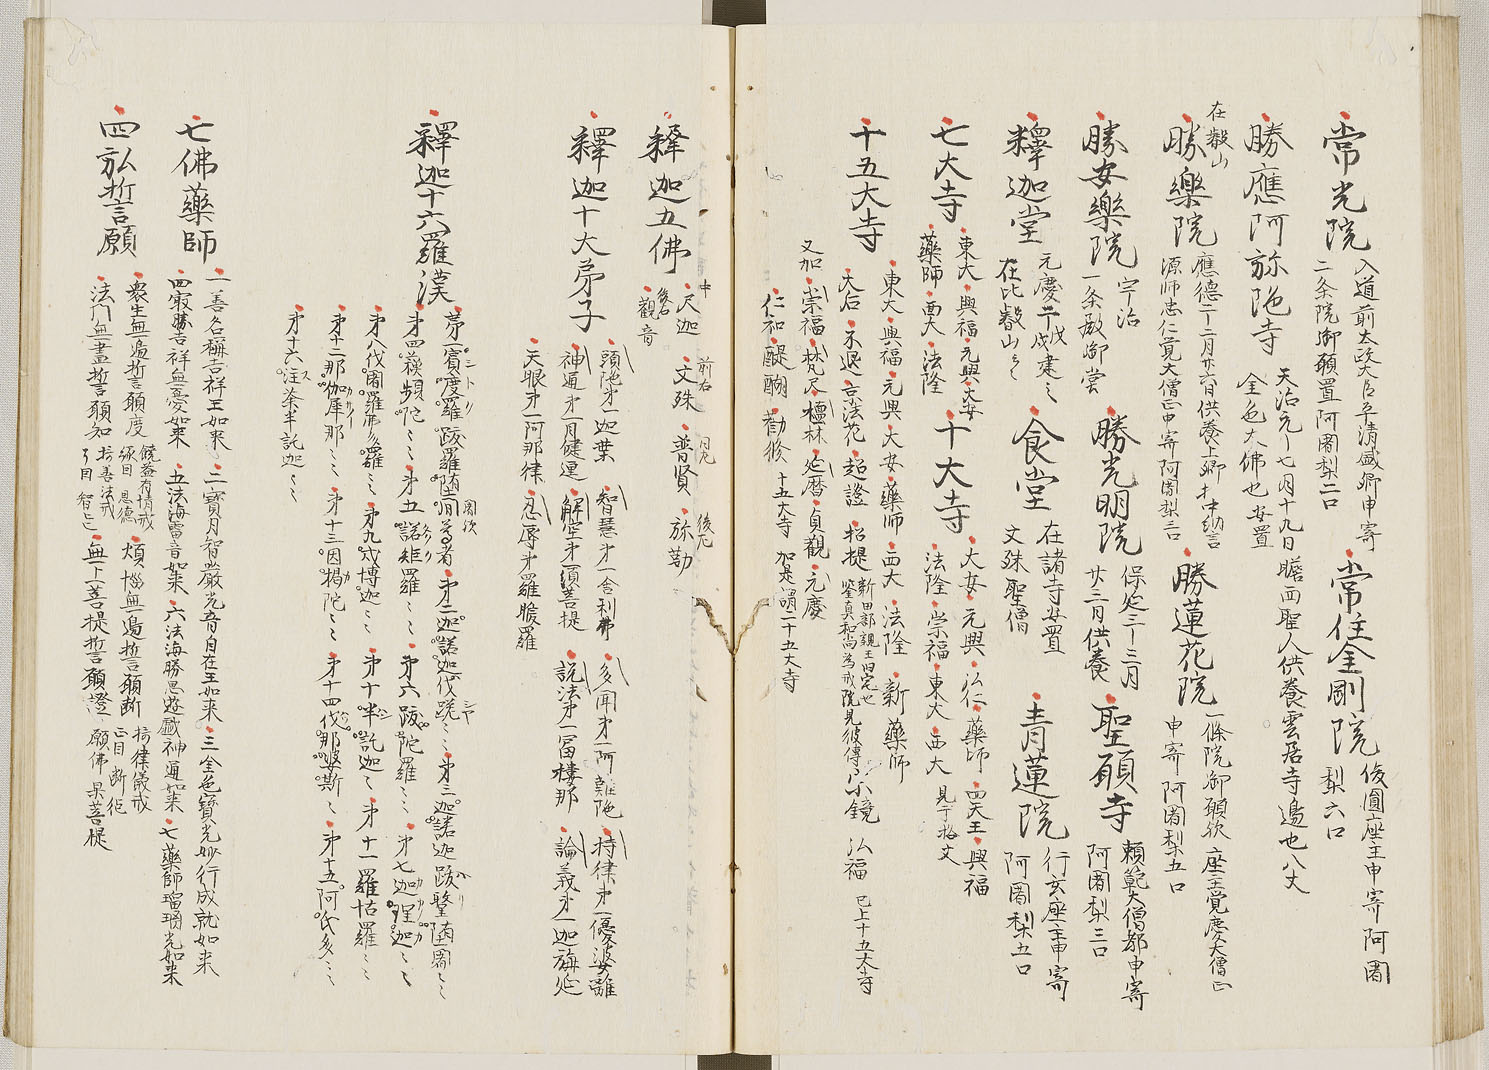 常光院 入道前太政大臣平清盛卿申寄
二条院御願置阿闍梨二口
常住金剛院 俊圓座主申寄阿闍
梨六口
勝應阿弥陀寺 天治元ー七月十九日瞻西聖人供養雲居寺邊也八丈
金色大佛也安置
在叡山
勝樂院 應德二ー二月廿六日供養上卿
源師忠仁覚大僧正申寄阿闍梨三口
勝蓮花院 一條院御願欤座主覚慶大僧正
申寄阿闍梨五口
勝安樂院 宇治
一条殿御堂
勝光明院 保延三ー三月
廿三日供養
聖願寺 頼範大僧都申寄
阿闍梨三口
釋迦堂 元慶
在比叡山
食堂 在諸寺安置
文殊聖僧
青蓮院 行玄座主申寄
阿闍梨五口
七大寺 東大 興福 元興 大安
藥師 西大 法隆
十大寺 大安 元興 弘仁 藥師 四天王 興福
法隆 崇福 東大 西大 見于格文
十五大寺 東大 興福 元興 大安 藥師 西大 法隆 新藥師
大后 不退 京法花 超證 招提 新田部親王旧宅也
鑒真和尚為戒院見彼傳
弘福 已上十五大寺
又加 崇福 梵尺 檀林 延暦 貞觀 元慶
仁和 醍醐 勸修 十五大寺加是謂二十五大寺
釋迦五佛 中 尺迦 前右 文殊 普賢 後左 弥勒
後右 觀音
釋迦十大弟子 頭陁第一迦葉 智慧第一舎利弗 多聞第一阿難陁 持律第一優婆離
神通第一目健連 解空第一須菩提 説法第一冨樓那 論義第一迦旃延
天眼第一阿那律 忍辱第一羅睺羅
釋迦十六羅漢 第一賓度羅跋羅堕闍尊者 第二迦諾迦伐蹉ミミ 第三迦諾迦跋釐堕闍ミミ
第四蘓頻陀ミミ 第五諾矩羅ミミ 第六跋陀羅ミミ 第七迦理迦ミミ
第八伐闍羅弗多羅ミミ 第九戌博迦ミミ 第十半託迦ミミ 第十一羅怙羅ミミ
第十二那伽犀那ミミ 第十三因掲陀ミミ 第十四伐那婆斯ミミ 第十五阿氏多ミミ
第十六注荼半託迦ミミ
七佛藥師 一善名稱吉祥王如来 二寶月智嚴光音自在王如来 三金色寶光妙行成就如来
四寂勝吉祥無憂如来 五法海雷音如来 六法海勝恵遊戯神通如来 七藥師瑠璃光如来
四弘誓願 衆生無邊誓願度 饒益有情戒
縁因 恩德
煩惱無邊誓願断 接律儀戒
正因 断德
法門無盡誓願知 接善法戒
了因 智德
無上菩提誓願證 願佛果菩提